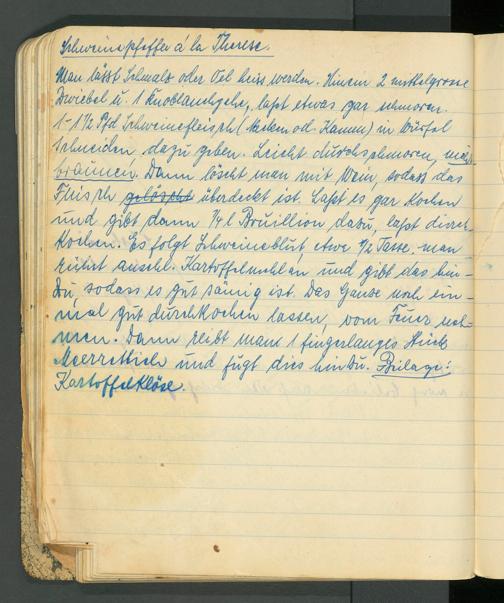 Schweinepfeffer á la Therese.
Man lässt Schmalz oder Oel heiss werden. Hinein 2 mittelgrosse
Zwiebel u. 1 Knoblauchzehe, lasst etwas gar schmoren.
1-1½ Pfd Schweinefleisch (Nacken od. Kamm) in Würfel
schneiden, dazu geben. Leicht durchschmoren, nicht
bräunen. Dann löscht man mit Wein, sodass das
Fleisch gelöscht überdeckt ist. Lasst es gar kochen
und gibt dann ¼ l Bruillion dazu, lasst durch-
kochen. Es folgt Schweineblut, etwa ½ Tasse, man
rührt anschl. Kartoffelmehl an und gibt das hin-
zu, sodass es gut sämig ist. Das Ganze noch ein-
mal gut durchkochen lassen, vom Feuer neh-
men. Dann reibt mann 1 fingerlanges Stück
Meerrettich und fügt dies hinzu. Beilage:
Kartoffelklöse.